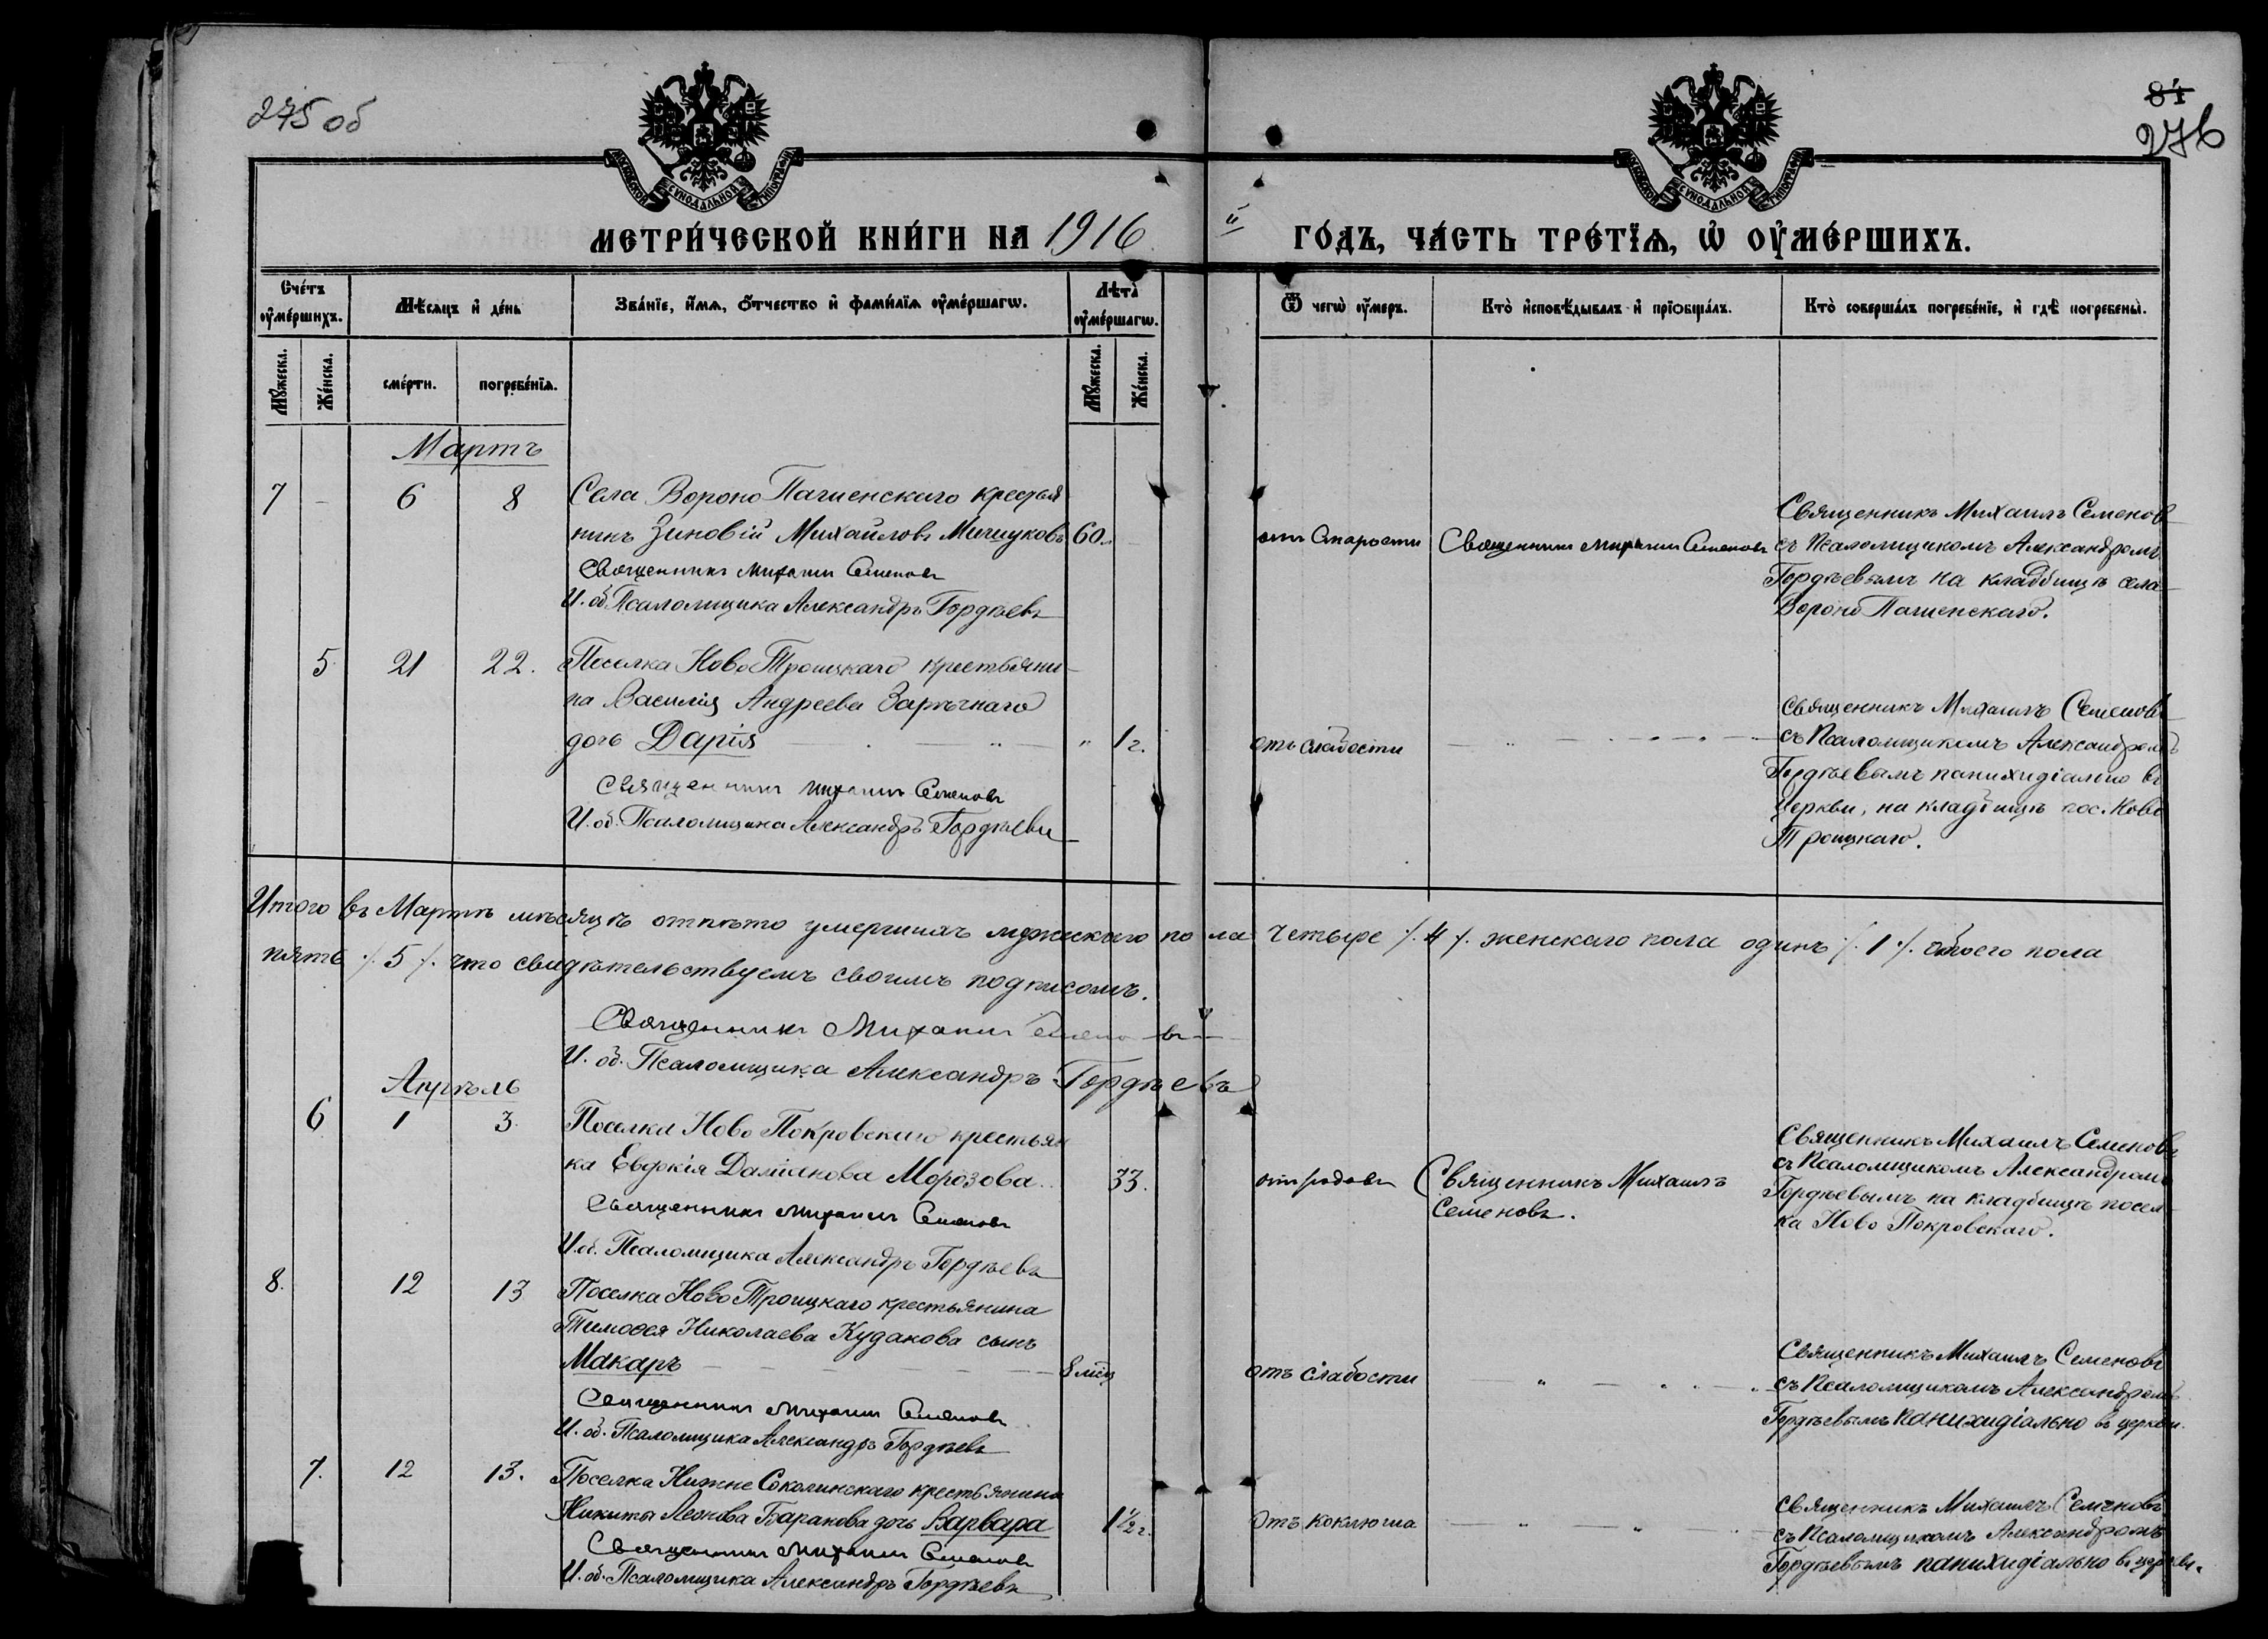 275 об
84
276
МОСКОВСКОЙ СѴНОДАЛЬНОЙ ТИПОГРАФІИ
МОСКОВСКОЙ СѴНОДАЛЬНОЙ ТИПОГРАФІИ
МЕТРИ́ЧЕСКОЙ КНИ́ГИ НА 1916 й ГО́ДЪ, ЧА́СТЬ ТРЕ́ТЇѦ, Ѡ҆ ОУ҆МЕ́РШИХЪ.
Счетъ оу҆ме́ршихъ.
Мѣ́сѧцъ и҆ де́нь
Зва́нїе, и҆́мѧ, ѻ҆́тчество и҆ фами́лїѧ оу҆ме́ршагѡ.
Лѣта̀ оу҆ме́ршагѡ.
Ѿ чегѡ̀ оу҆́меръ.
Кто̀ и҆сповѣ́дывалъ и҆ прїѡбща́лъ.
Кто̀ соверша́лъ погребе́нїе, и҆ гдѣ̀ погребены̀.
Мꙋ́жеска.
Же́нска.
сме́рти.
погребе́нїѧ.
Мꙋ́жеска.
Же́нска.
Мартъ
7 - 6 8 Села Вороно Пагиенскаго крестья
нинъ Зиновій Михайловъ Мишуковъ 60.
Священникъ Михаилъ Семеновъ
И. об. Псаломщика Александръ Гордѣевъ
отъ Старости
Священникъ Михаилъ Семеновъ
Священникъ Михаилъ Семеновъ
съ Псаломщикомъ Александромъ
Гордѣевымъ на кладбищѣ села
Вороно Пагиенскаго.
5 21 22. Поселка Ново Троицкаго крестьяни-
на Василія Андреева Зарѣчнаго
дочь Дарія " 1 г.
Священникъ Михаилъ Семеновъ
И. об. Псаломщика Александръ Гордѣевъ
отъ слабости
Священникъ Михаилъ Семеновъ
съ Псаломщикомъ Александромъ
Гордѣевымъ панихидіально въ
Церкви, на кладбищѣ пос. Ново
Троицкаго.
Итого въ Мартѣ мѣсяцѣ отпѣто умершихъ мужескаго пола четыре /. 4 /. женскаго пола одинъ /. 1 /. обоего пола
пять /. 5 /. что свидѣтельствуемъ своимъ подписомъ.
Священникъ Михаилъ Семеновъ
И. об. Псаломщика Александръ Гордѣевъ
Апрѣль
6 1 3. Поселка Ново Покровскаго крестьян
ка Евдокія Даміанова Морозова. 33.
Священникъ Михаилъ Семеновъ
И. об. Псаломщика Александръ Гордѣевъ
отъ родовъ
Священникъ Михаилъ
Семеновъ.
Священникъ Михаилъ Семеновъ
съ Псаломщикомъ Александромъ
Гордѣевымъ на кладбищѣ посел-
ка Ново Покровскаго.
8. 12 13 Поселка Ново Троицкаго крестьянина
Тимоѳея Николаева Кудакова сынъ
Макаръ 8 мѣц
Священникъ Михаилъ Семеновъ
И. об. Псаломщика Александръ Гордѣевъ
отъ слабости
Священникъ Михаилъ Семеновъ
съ Псаломщикомъ Александромъ
Гордѣевымъ панихидіально въ церкви.
7. 12 13. Поселка Нижне Соколинскаго крестьянина
Никиты Леонова Баранова дочь Варвара 1½ г.
Священникъ Михаилъ Семеновъ
И. об. Псаломщика Александръ Гордѣевъ
отъ коклюша
Священникъ Михаилъ Семеновъ
съ Псаломщикомъ Александромъ
Гордѣевымъ панихидіально въ церкви.